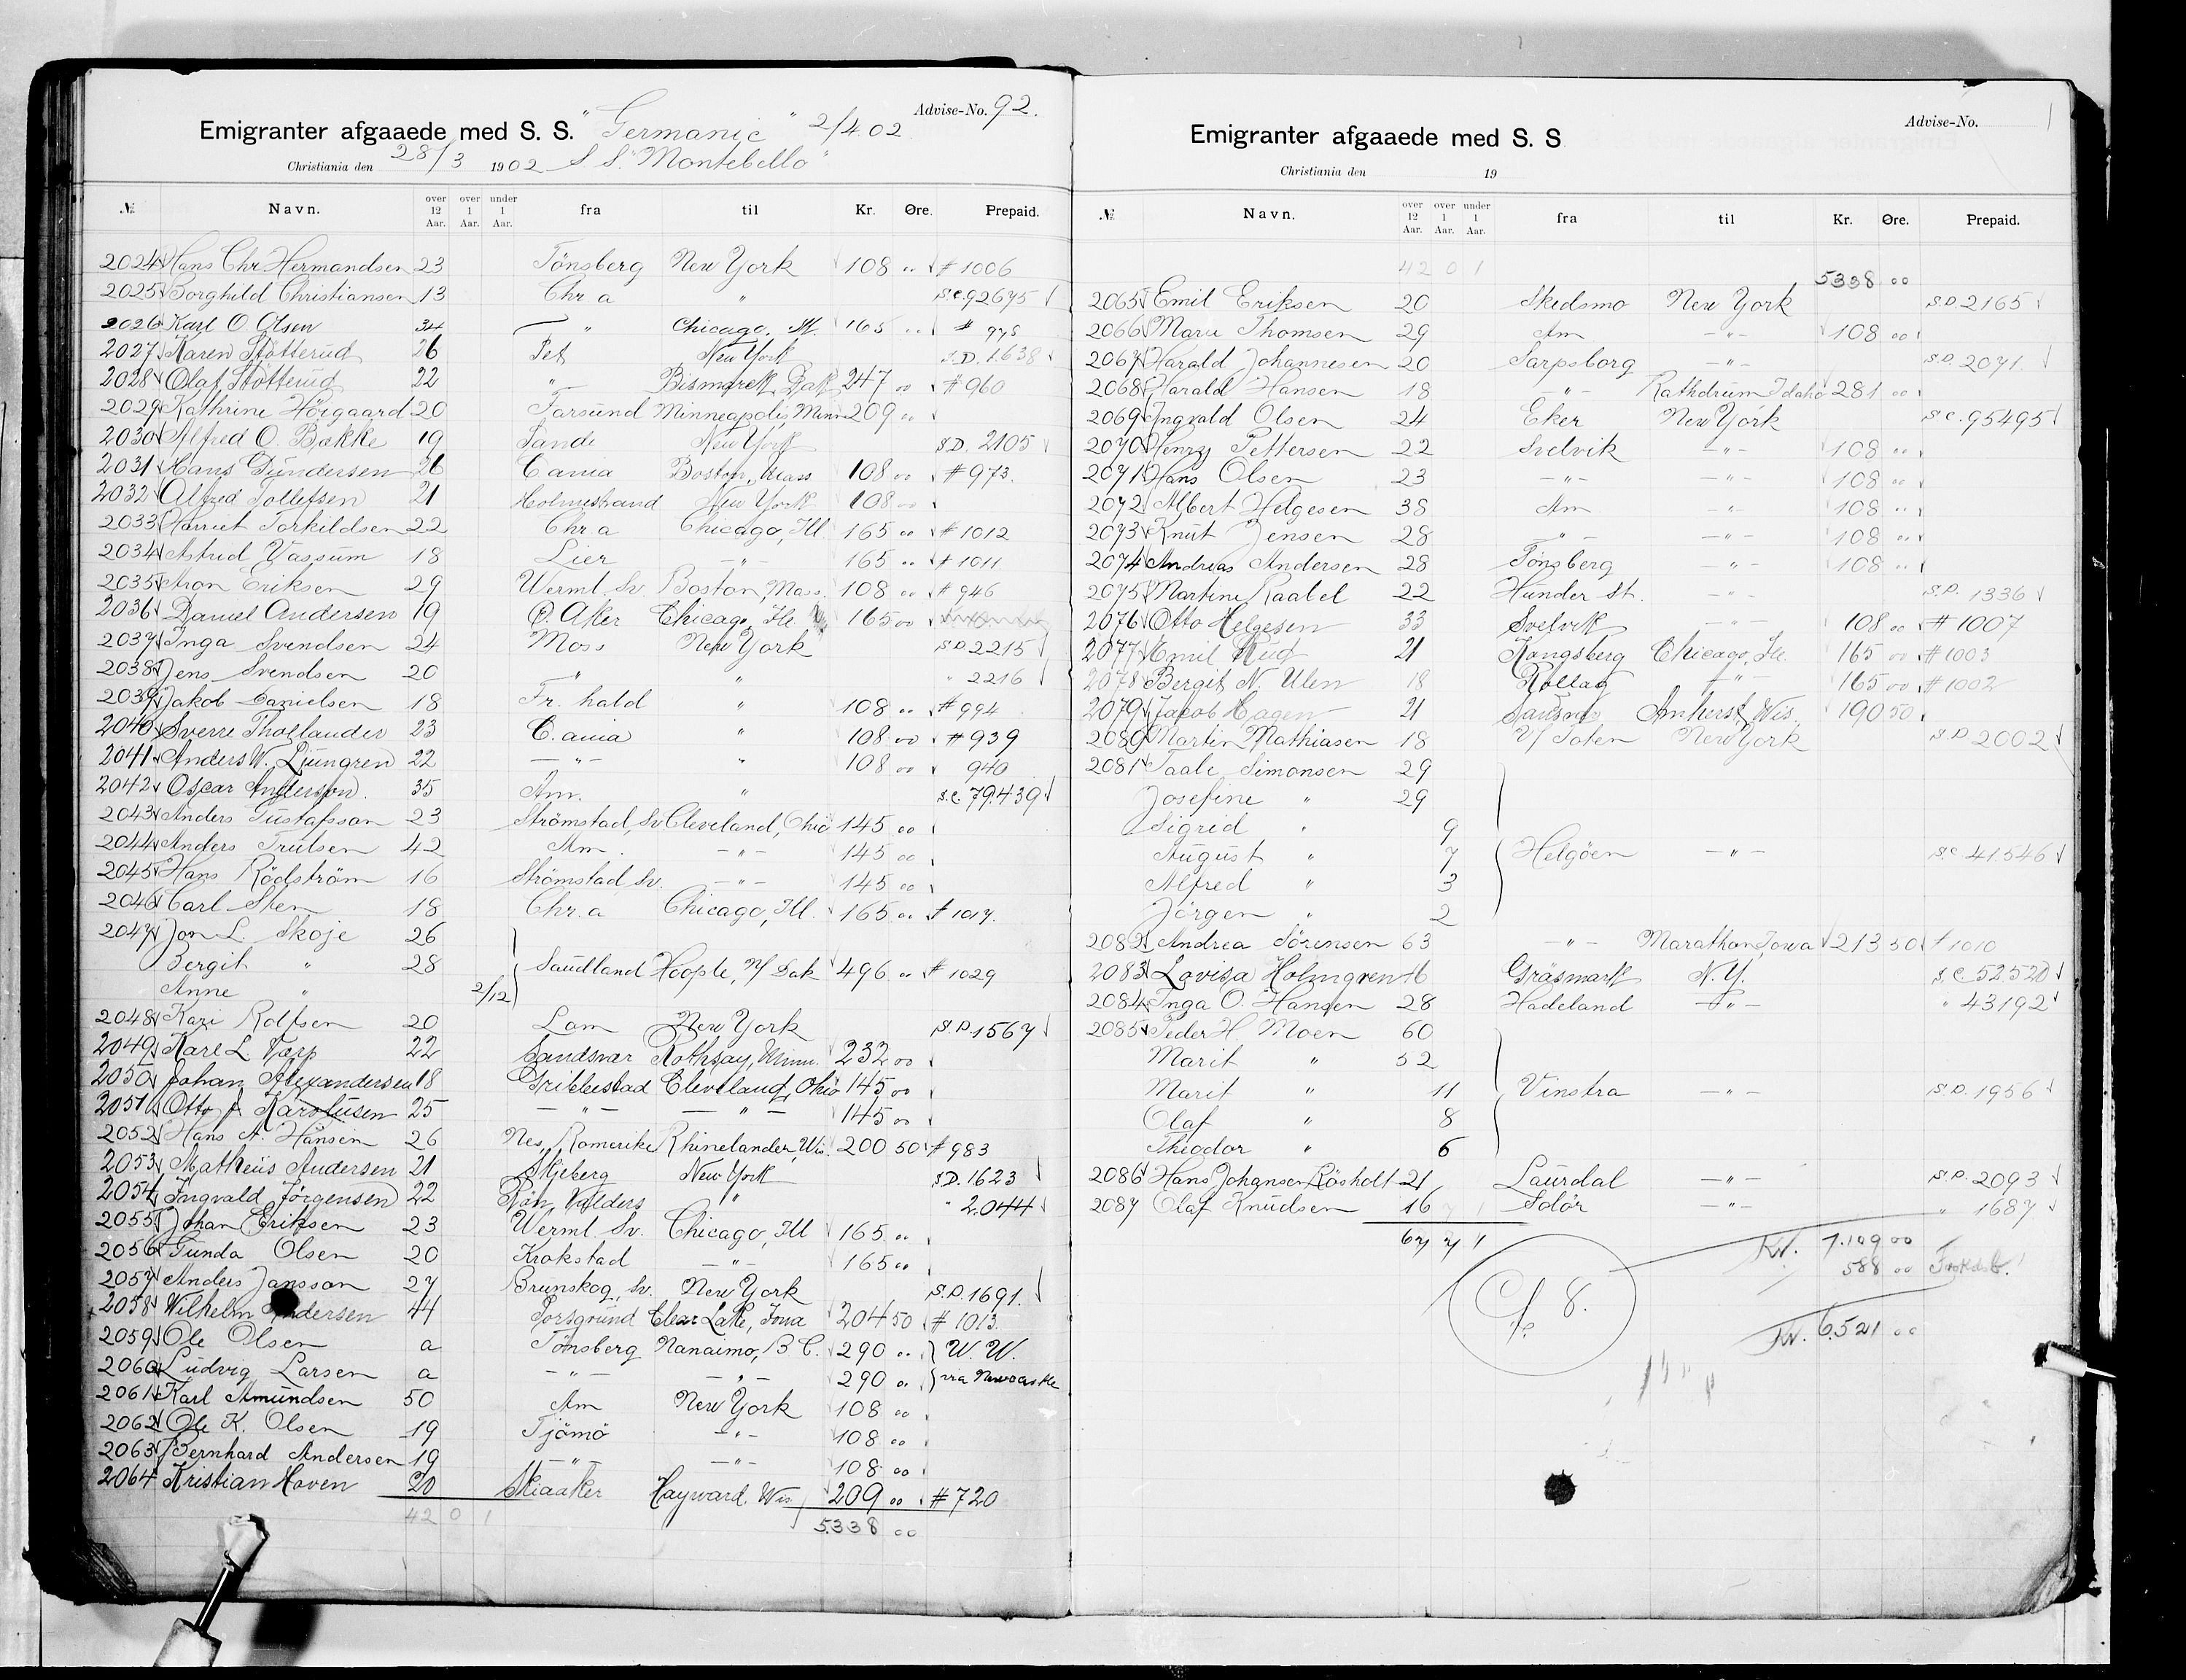 Advise-No. 92.
Emigranter afgaaede med S. S. "Germanic" 2/4 02
Christiania den 28/3 1902 S S. "Montebello"
№ Navn. over 12 Aar. over 1 Aar. under 1 Aar. fra til Kr. Øre. Prepaid.
2024 Hans Chr. Hermandsen 23 Tönsberg New York 108 " # 1006
2025 Borghild Christiansen 13 Chr. a " S.C. 92675
2026 Karl O. Olsen 34 " Chicago, Ill. 165 " # 975
2027 Karen Stötterud 26 Fet New York S.D. 1638
2028 Olaf Stötterud 22 " Bismarck, Dak 247 00 # 960
2029 Kathrine Höigaard 20 Farsund Minneapolis, Minn 209 00
2030 Alfred O. Bakke 19 Sande New York S.D. 2105
2031 Hans Gundersen 26 C.ania Boston, Mass 108 00 # 973.
2032 Alfred Tollefsen 21 Holmestrand New York 108 00
2033 Harriet Torkildsen 22 Chr. a Chicago, Ill 165 00 # 1012
2034 Astrid Vassum 18 Lier -"- 165 00 # 1011
2035 Aron Eriksen 29 Werml. Sv. Boston, Mass. 108 00 # 946
2036 Daniel Andersen 19 Ö. Aker Chicago, Ill. 165 00
2037 Inga Svendsen 24 Moss New York S.D. 2215
2038 Jens Svendsen 20 " " " 2216
2039 Jakob Danielsen 18 Fr. hald " 108 00 # 994
2040 Sverre Thollander 23 C.ania " 108 00 # 939
2041 Anders W. Ljungren 22 -"- " 108 00 940
2042 Oscar Anderson. 35 Am. " S.C. 79439
2043 Anders Gustafsson 23 Strömstad, Sv Cleveland, Ohio 145 00
2044 Anders Trulsen 42 Am. -"- 145 00
2045 Hans Rödström 16 Strömstad Sv. -"- 145 00
2046 Carl Sten 18 Chr. a Chicago, Ill. 165 00 # 1017.
2047 Jon L. Skoje 26
Bergit " 28 Saudland Hoople, N/ Dak 496 00 # 1029
Anne " 2/12
2048 Kari Rolfsen 20 Lom New York S.D. 1567
2049 Karl L. Varp 22 Sandsvær Rothsay, Minn. 232 00
2050 Johan Alexandersen 18 Gribbestad Cleveland, Ohio 145 00
2051 Otto J. Karolusen 25 -"- -"- 145 00
2052 Hans A. Hansen 26 Nes, Romerike Rhinelander, Wis. 200 50 # 983
2053 Matheus Andersen 21 Skjeberg New York S.D. 1623
2054 Ingvald Jörgensen 22 Valders " " 2.044
2055 Johan Eriksen 23 Werml. Sv. Chicago, Ill 165 00
2056 Gunda Olsen 20 Krokstad -"- 165 00
2057 Anders Jansson 27 Brunskog, Sv. New York S.D. 1691.
2058 Wilhelm Andersen 44 Porsgrund Clear Lake, Iowa 204 50 # 1013.
2059 Ole Olsen a Tönsberg Nanaimo, B C. 290 00 W. W.
2060 Ludvig Larsen a -"- -"- 290 00 via Newcastle
2061 Karl Amundsen 50 Am New York 108 00
2062 Ole K. Olsen 19 Tjömö -"- 108 00
2063 Bernhard Andersen 19 -"- -"- 108 00
2064 Kristian Hoven 20 Skiaaker Hayward. Wis 209 00 # 720
42 0 1 5338 00
Advise-No.
Emigranter afgaaede med S. S
Christiania den 19
№ Navn. over 12 Aar. over 1 Aar. under 1 Aar. fra til Kr. Øre. Prepaid.
42 0 1 5338 00
2065 Emil Eriksen 20 Skedsmo New York S.D. 2165
2066 Marie Thomsen 29 Am -"- 108 00
2067 Harald Johannesen 20 Sarpsborg -"- S.D. 2071.
2068 Harald Hansen 18 -"- Rathdrum Idaho 281 00
2069 Ingvald Olsen 24 Eker New York S.C. 95495
2070 Henry Pettersen 22 Svelvik -"- 108 00
2071 Hans Olsen 23 -"- -"- 108 00
2072 Albert Helgesen 38 Am -"- 108 00
2073 Knut Jensen 28 -"- -"- 108 00
2074 Andreas Andersen 28 Tönsberg -"- 108 00
2075 Martine Raabel 22 Hunder st. -"- S.D. 1336
2076 Otto Helgesen 33 Svelvik -"- 108 00 # 1007
2077 Emil Rud 21 Kongsberg Chicago, Ill. 165 00 # 1003
2078 Bergit N. Ulen 18 Rollag -"- 165 00 # 1002
2079 Jacob Hagen 21 Amherst, Wis. 190 50
2080 Martin Mathiasen 18 V/ Toten New York S.D. 2002
2081 Taale Simonsen 29
Josefine " 29
Sigrid " 9
August " 7 Helgöen -"- S.C. 41.546
Alfred " 3
Jörgen " 2
2082 Andrea Sörensen 63 -"- Marathon, Iowa 213 50 # 1010
2083 Lovisa Holmgren 16 Gräsmark N. Y. S.C. 52520
2084 Inga O. Hansen 28 Hadeland -"- " 43192
2085 Peder H. Moen 60
Marit " 52
Marit " 11 Vinstra -"- S.D. 1956
Olaf " 8
Theodor " 6
2086 Hans Johansen Rösholt 21 Laurdal -"- S.D. 2093
2087 Olaf Knudsen 16 Solör -"- " 1687
67 7 1 Kr. 7.109 00
588 00
Kr. 6.521 00
8.